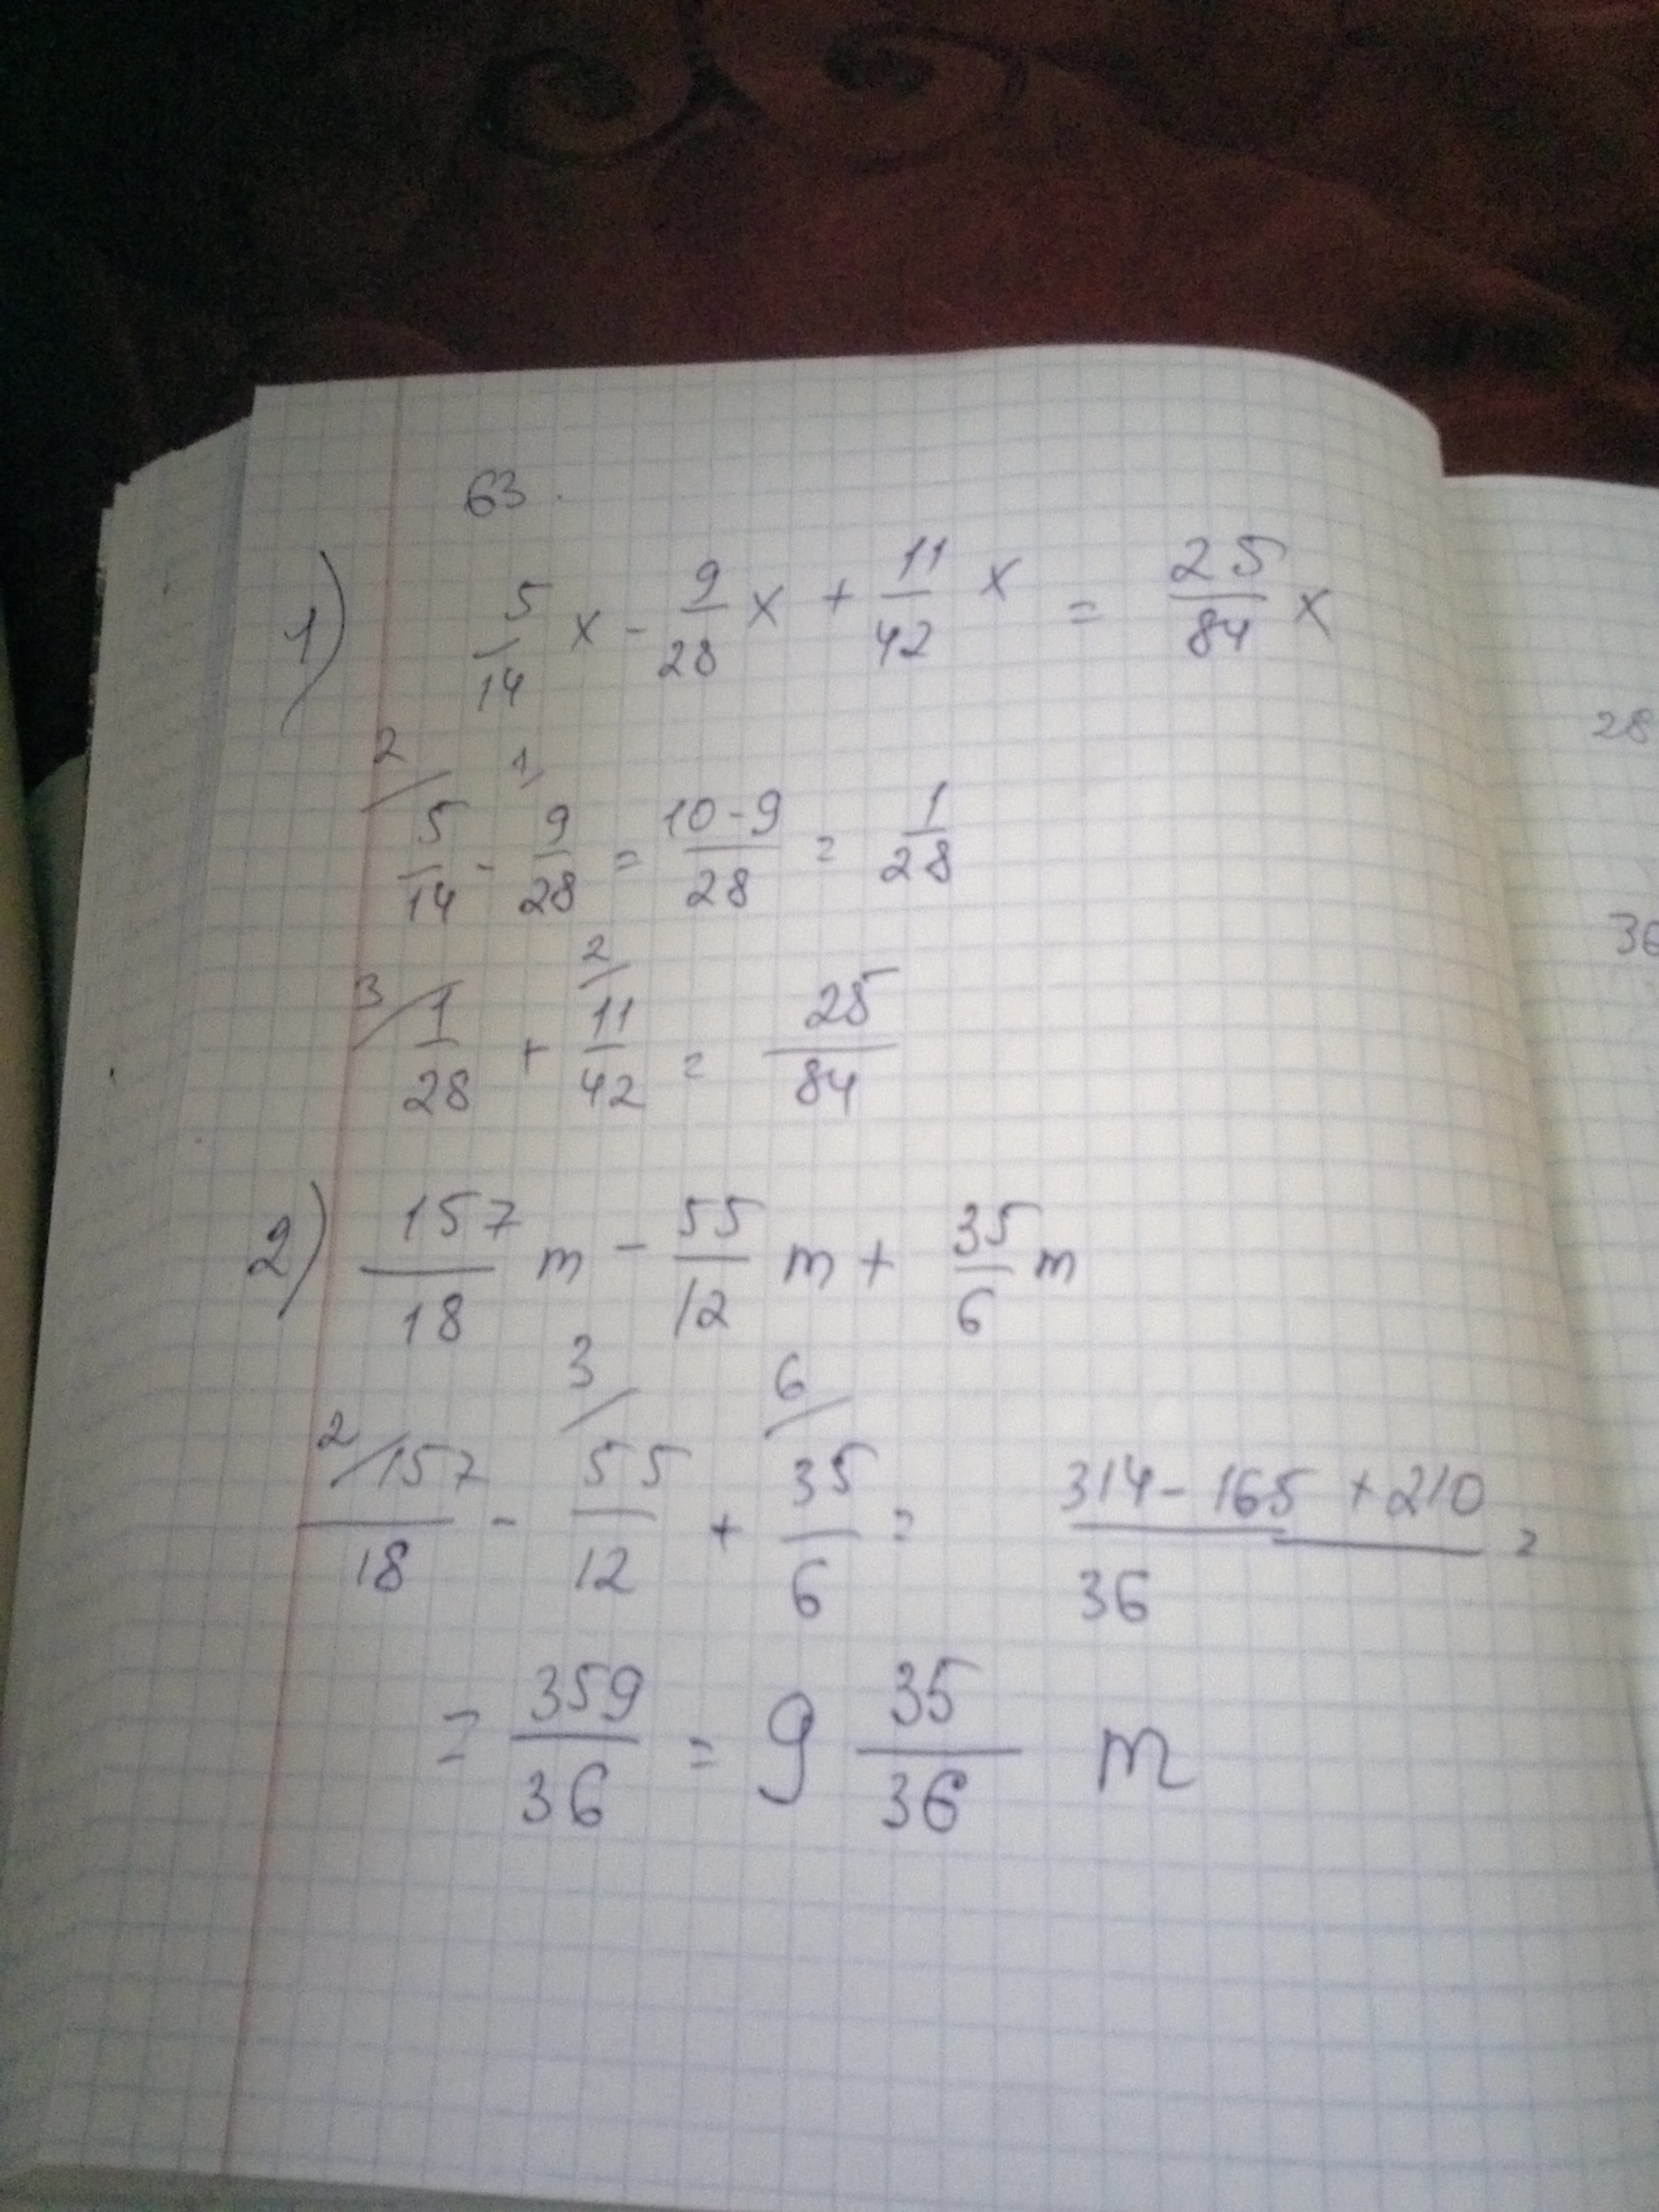 63.
1) 5/14 x - 9/28 x + 11/42 x = 25/84 x
2/ 5/14 - 1/ 9/28 = 10-9/28 = 1/28
3/ 1/28 + 2/ 11/42 = 25/84
2) 157/18 m - 55/12 m + 35/6 m
2/ 157/18 - 3/ 55/12 + 6/ 35/6 = 314-165+210/36 =
= 359/36 = 9 35/36 m
28
36